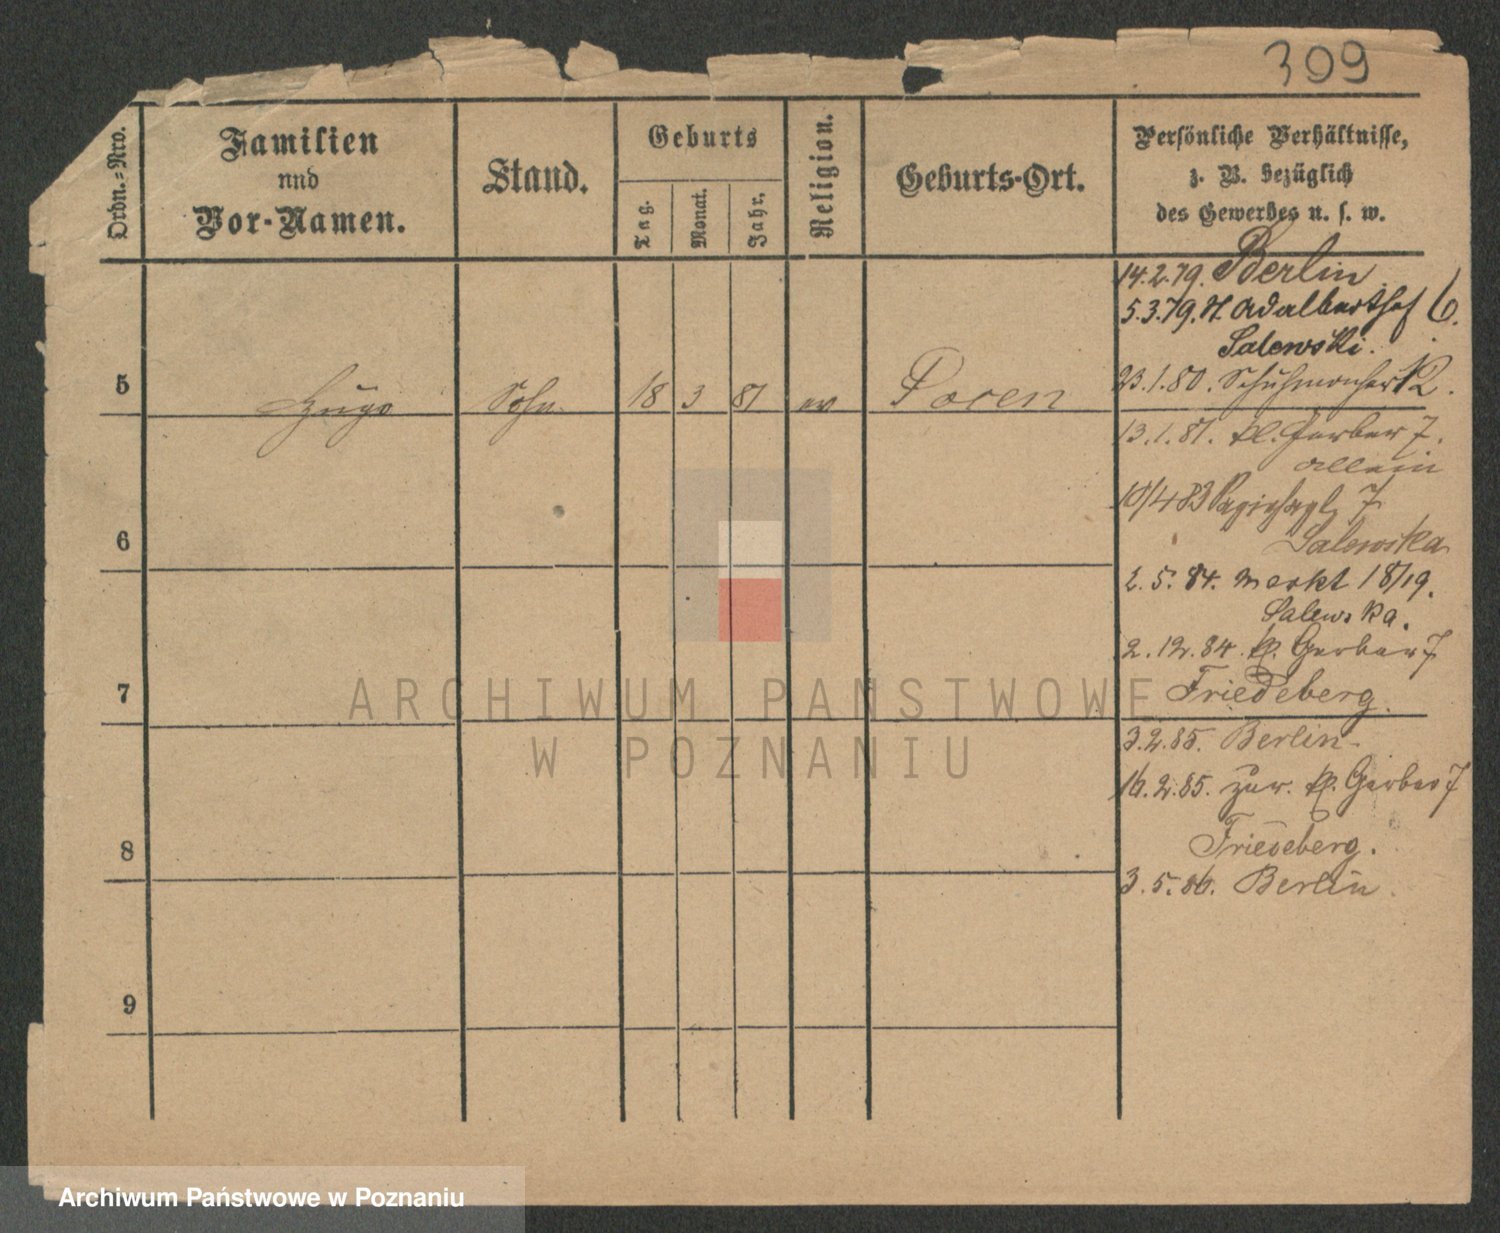 309
Ordn.-Nro.
Familien
und
Vor-Namen.
Stand.
Geburts
Tag.
Monat.
Jahr.
Religion.
Geburts-Ort.
Persönliche Verhältnisse,
z. B. bezüglich
des Gewerbes u. s. w.
14.2.79. Berlin
5.3.79. H. Adalberthof 6.
Salewski.
23.1.80. Schuhmacher 12.
5 Hugo Sohn 18 3 81 ev Posen
13.1.81. kl. Gerber 7.
allein
10/4 83 7
Salewska
6
2.5.84. Markt 18/19.
Salewska.
2.12.84. kl. Gerber 7
Friedeberg.
7
3.2.85. Berlin.
16.2.85. zur. kl. Gerber 7
Friedeberg.
8
3.5.86. Berlin.
9
ARCHIWUM PAŃSTWOWE
W POZNANIU
Archiwum Państwowe w Poznaniu